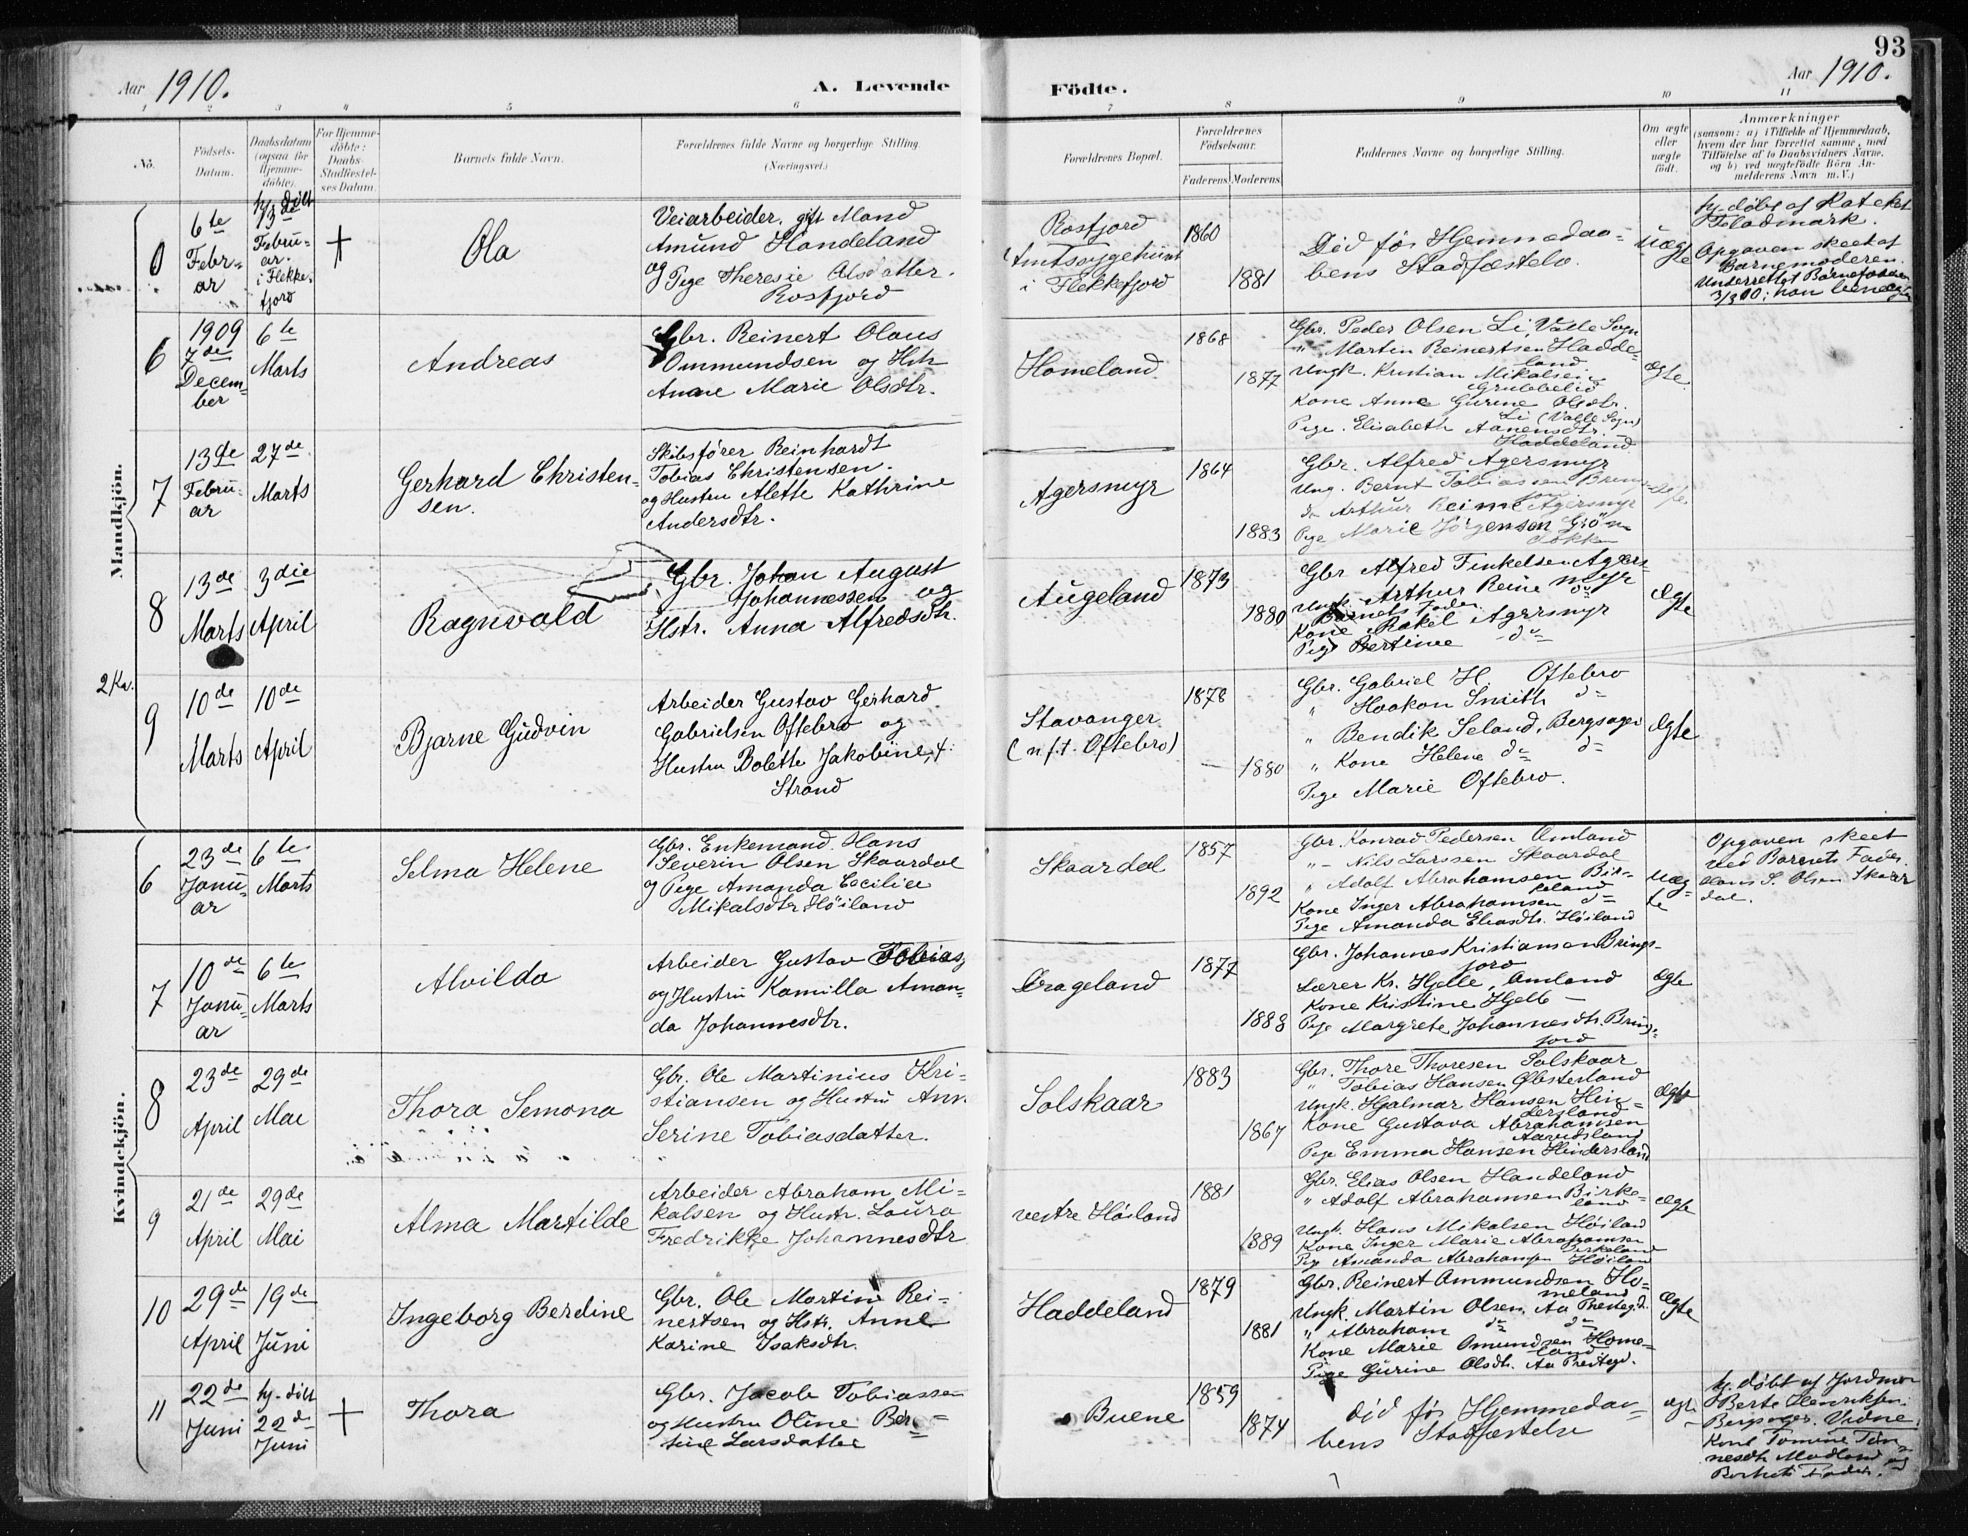 93
Aar 1910.
A. Levende
Födte.
Aar 1910.
1 2 3 4 5 6 7 8 9 10 11
No.
Födsels-
Datum.
Daabsdatum
(ogsaa for
Hjemme-
döbte).
For Hjemme-
döbte:
Daabs-
Stadfæstel-
ses Datum.
Barnets fulde Navn.
Forældrenes fulde Navne og borgerlige Stilling.
(Næringsvei.)
Forældrenes Bopæl.
Forældrenes
Födselsaar.
Faderens. Moderens.
Faddernes Navne og borgerlige Stilling.
Om ægte
eller
uægte
födt.
Anmærkninger
(saasom: a) i Tilfælde af Hjemmedaab,
hvem der har forrettet samme, med
Tilföielse af to Daabsvidners Navne,
og b) ved uægtefödte Börn An-
melderens Navn m. V.)
Mandkjön.
0
6te
Febr-
ar
hj. döbt
13de
Febru-
ar.
i Flekke-
fjord
+
Ola
Veiarbeider, gift Mand
Amund Handeland
og Pige Theresie Olsdatter
Rosfjord
Rosfjord
Amtssygehuset
i Flekkefjord
1860
1881
Död før Hjemmedaa-
bens Stadfæstelse.
Uægte
hj. døbt af Kateket
Fladmark.
Opgaven skeet af
Barnemoderen.
Underrettet Barnefaderen
6
1909
7de
Decem-
ber
6te
Marts
Andreas
Gbr. Reinert Olaus
Ommundsen og Hstr.
Anne Marie Olsdtr.
Homeland.
1868
1877
Gbr. Peder Olsen Li, Valle Sogn
" Martin Reinertsen Hadde-
land
Ungk. Kristian Mikalsen
Grubbelid
Kone Anne Gurine Olsdtr.
Li (Valle Sogn)
Pige Elisabeth Aanensdtr.
Haddeland
Ægte.
7
13de
Febru-
ar
27de
Marts
Gerhard Christen-
sen.
Skibsfører Reinhardt
Tobias Christensen.
og Hustru Alette Kathrine
Andersdtr.
Agersmyr
1864
1883
Gbr. Alfred Agersmyr
Ung. Bernt Tobiassen
do Arthur Reime Agersmyr
Pige Marie Jörgensen Grön-
8
13de
Marts
3die
April
Ragnvald
Gbr. Johan August
Johannessen og
Hstr. Anna Alfredsdtr.
Augeland
1873
1880
Gbr Alfred Finkelsen Agers-
myr
Ungk. Arthur Reime do
Barnets fader.
Kone Rakel Agersmyr
Pige Bertine do
Ægte
2 Kv.
9
10de
Marts
10de
April
Bjarne Gudvin
Arbeider Gustav Gerhard
Gabrielsen Oftebro og
Hustru Bolette Jakobine, f:
Strand
Stavanger
(n.f.t. Oftebro)
1878
1880
Gbr. Gabriel H. Oftebro
" Haakon Smith do
" Bendik Seland, Bergsager
" Kone Helene do do
Pige Marie Oftebro.
Ægte
Kvindekjön.
6
23de
Janu-
ar
6te
Marts
Selma Helene
Gbr. Enkemand Hans
Severin Olsen Skaardal
og Pige Amanda Cecilie
Mikalsdtr Høiland
Skaardal
1857
1892
Gbr. Konrad Pedersen Omland
" Nils Larssen Skaardal
" Adolf Abrahamsen Bir-
keland
Kone Inger Abrahamsen do
Pige Amanda Eliasdtr. Høiland
Uæg-
te
Opgaven skeet
ved Barnets Fader
Hans S. Olsen Skaar
dal.
7
10de
Janu-
ar
6te
Marts
Alvilda
Arbeider Gustav Tobias,
og Hustru Kamilla Aman-
da Johannesdtr.
Drageland
1877
1883
Gbr. Johannes Kristiansen Brings-
jord
Lærer Kr. Hjelle, Omland
Kone Kristine Hjelle –
Pige Margrete Johannesdtr. Brings-
jord
Ægte
8
23de
April
29de
Mai
Thora Semona
Gbr. Ole Martinius Kri-
stiansen og Hustru Ann
Serine Tobiasdatter.
Solskaar
1883
1867
Gbr. Thore Thoresen Solskaar
" Tobias Hansen Øbsterland
Ungk. Hjalmar Hansen Hin-
dersland
Kone Gustava Abrahamsen
Pige Emma Hansen Hindersland
Ægte
9
21de
April
29de
Mai
Alma Martilde
Arbeider Abraham Mi-
kalsen og Hustr. Laura
Fredrikke Johannesdtr
vestre Høiland
1881
1889
Gbr. Elias Olsen Handeland
" Adolf Abrahamsen Birke-
land
Ungk. Hans Mikalsen Høiland
Kone Inger Marie Abrahamsen
Birkeland
Pige Amanda Abrahamsen Høiland
Ægte
10
29de
April
19de
Juni
Ingeborg Berdine
Gbr. Ole Martin Rei-
nertsen og Hstr. Anne
Karine Isaksdtr.
Haddeland
1879
1881
Gbr. Reinert Ommundsen Ho-
meland
Ungk. Martin Olsen, Aa Prestegd.
" Abraham do do
Kone Marie Omundsen Home-
land
Pige Gurine Olsdtr. Aa Prestegd.
Ægte
11
22de
Juni
hj. döbt
22de
Juni
+
Thora
Gbr. Jacob Tobiassen
og Hustru Oline Ber-
tine Larsdatter
Buene
1859
1874
Död før Hjemmedaa-
bens Stadfæstelse
ægte
hj. døbt af Jordmor
Berte Henriksen
Bergsager. Vidne
Kone Tomine Tøn-
nesdtr Modland og
Barnets Fader.